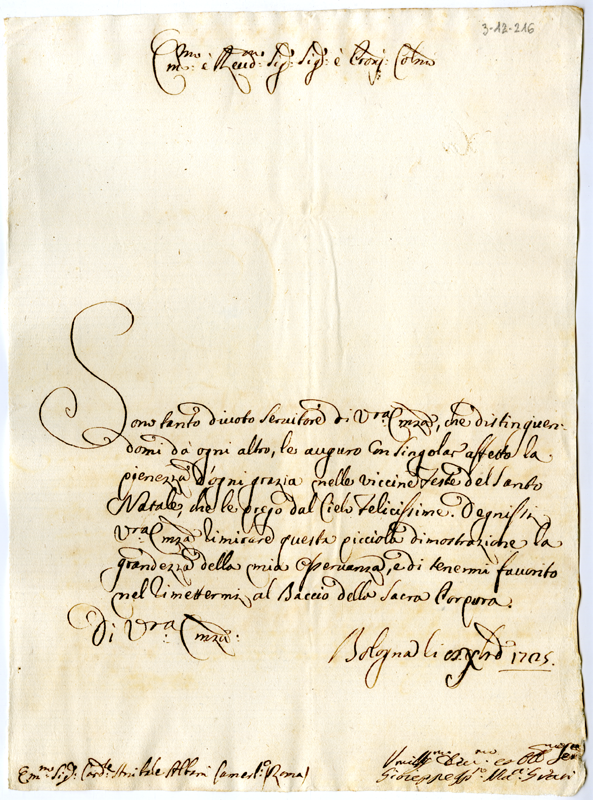 3-12-216
Em:mo e Reud:mo Sig:r Sig:r e Pron: Colmo
Sono tanto diuoto Seruitore di Vra Emza, che distinguen-
domi da ogni altro, le auguro con singolar affetto la
pienezza d'ogni grazia nelle viccine Feste del Santo
Natale, che le prego dal Cielo Felicissime. Degnisi
Vra Emza rimirare questa picciola dimostrazione la
grandezza della mia osseruanza, e di tenermi fauorito
nel rimettermi al Baccio della Sacra Porpora.
Di Vra Emza:
Bologna li Xbre 1725.
Em:mo Sig:r Card:le Annibale Albani Camerl:o (Roma)
Umiliss:mo Ser
Gioseppe